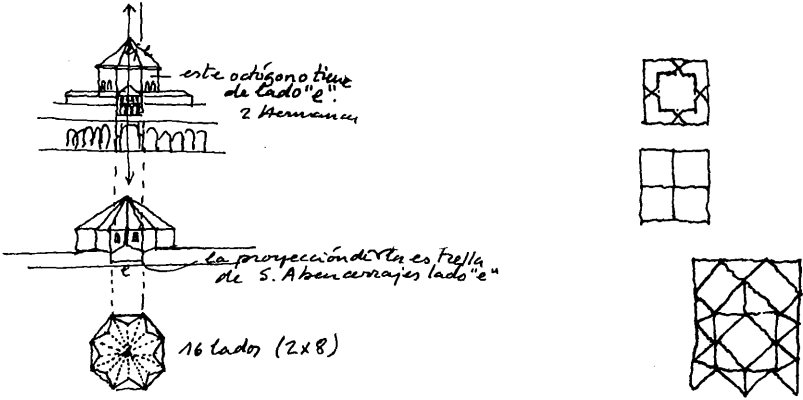 e
este octógono tiene
de lado "e".
2 Hermanas
e
la proyección de esta estrella
de S. Abencerrajes lado "e"
16 lados (2x8)